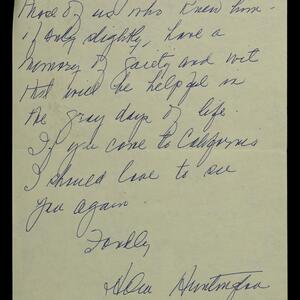 those of us who knew him -
if only slightly, have a
memory of gaiety and wit
that will be helpful in
the gray days of life.
If you come to California
I should love to see
you again
Fondly
Huntington